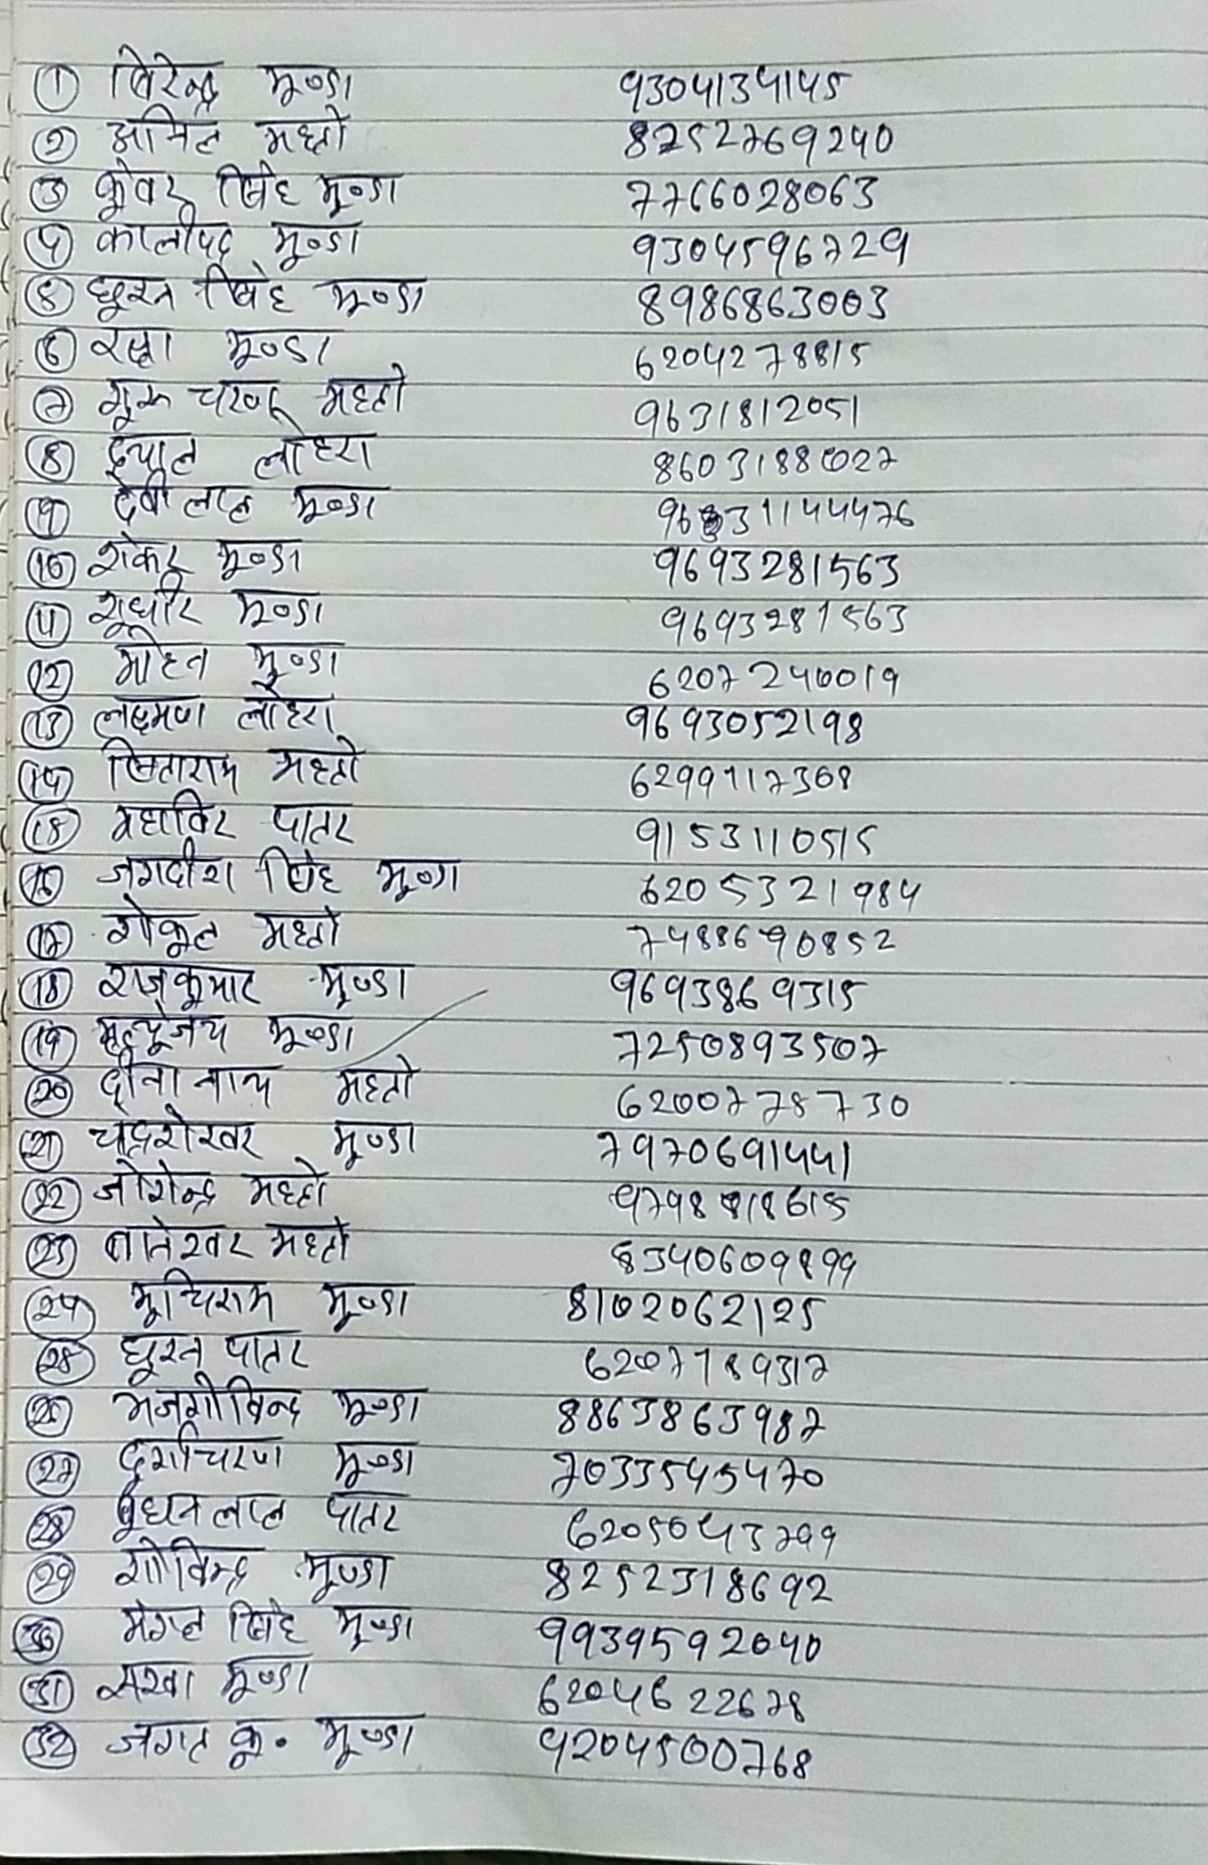 ① विरेन्द्र मुण्डा 9304134145
② अमित महतो 8252769240
③ कुँवर सिंह मुण्डा 7766028063
④ कालीपद मुण्डा 9304596729
⑤ घुरन सिंह मुण्डा 8986863003
⑥ मुण्डा 6204278815
⑦ गुरू चरण महतो 9631812051
⑧ दयाल लोहरा 8603188027
⑨ देवी लाल मुण्डा 9631144476
⑩ शंकर मुण्डा 9693281563
⑪ सुधीर मुण्डा 9693281563
⑫ मोहन मुण्डा 6207240019
⑬ लक्ष्मण लोहरा 9693052198
⑭ सिताराम महतो 6299117368
⑮ महाविर पातर 9153110515
⑯ जगदीश सिंह मुण्डा 6205321984
⑰ गोकुल महतो 7488690852
⑱ राजकुमार मुण्डा 9693869315
⑲ मृत्युंजय मुण्डा 7250893507
⑳ दीना नाथ महतो 6200778730
㉑ चंद्रशेखर मुण्डा 7970691441
㉒ जोगेन्द्र महतो 9798818615
㉓ बानेश्वर महतो 8340609899
㉔ मुचिराम मुण्डा 8102062125
㉕ घुरन पातर 6207189317
㉖ भजगोविन्द मुण्डा 8863863987
㉗ दुर्गाचरण मुण्डा 7033545470
㉘ बुधन लाल पातर 6205043799
㉙ गोविन्द मुण्डा 8252318692
㉚ मंगल सिंह मुण्डा 9939592040
㉛ सखा मुण्डा 6204622678
㉜ जगत कु. मुण्डा 9204500768